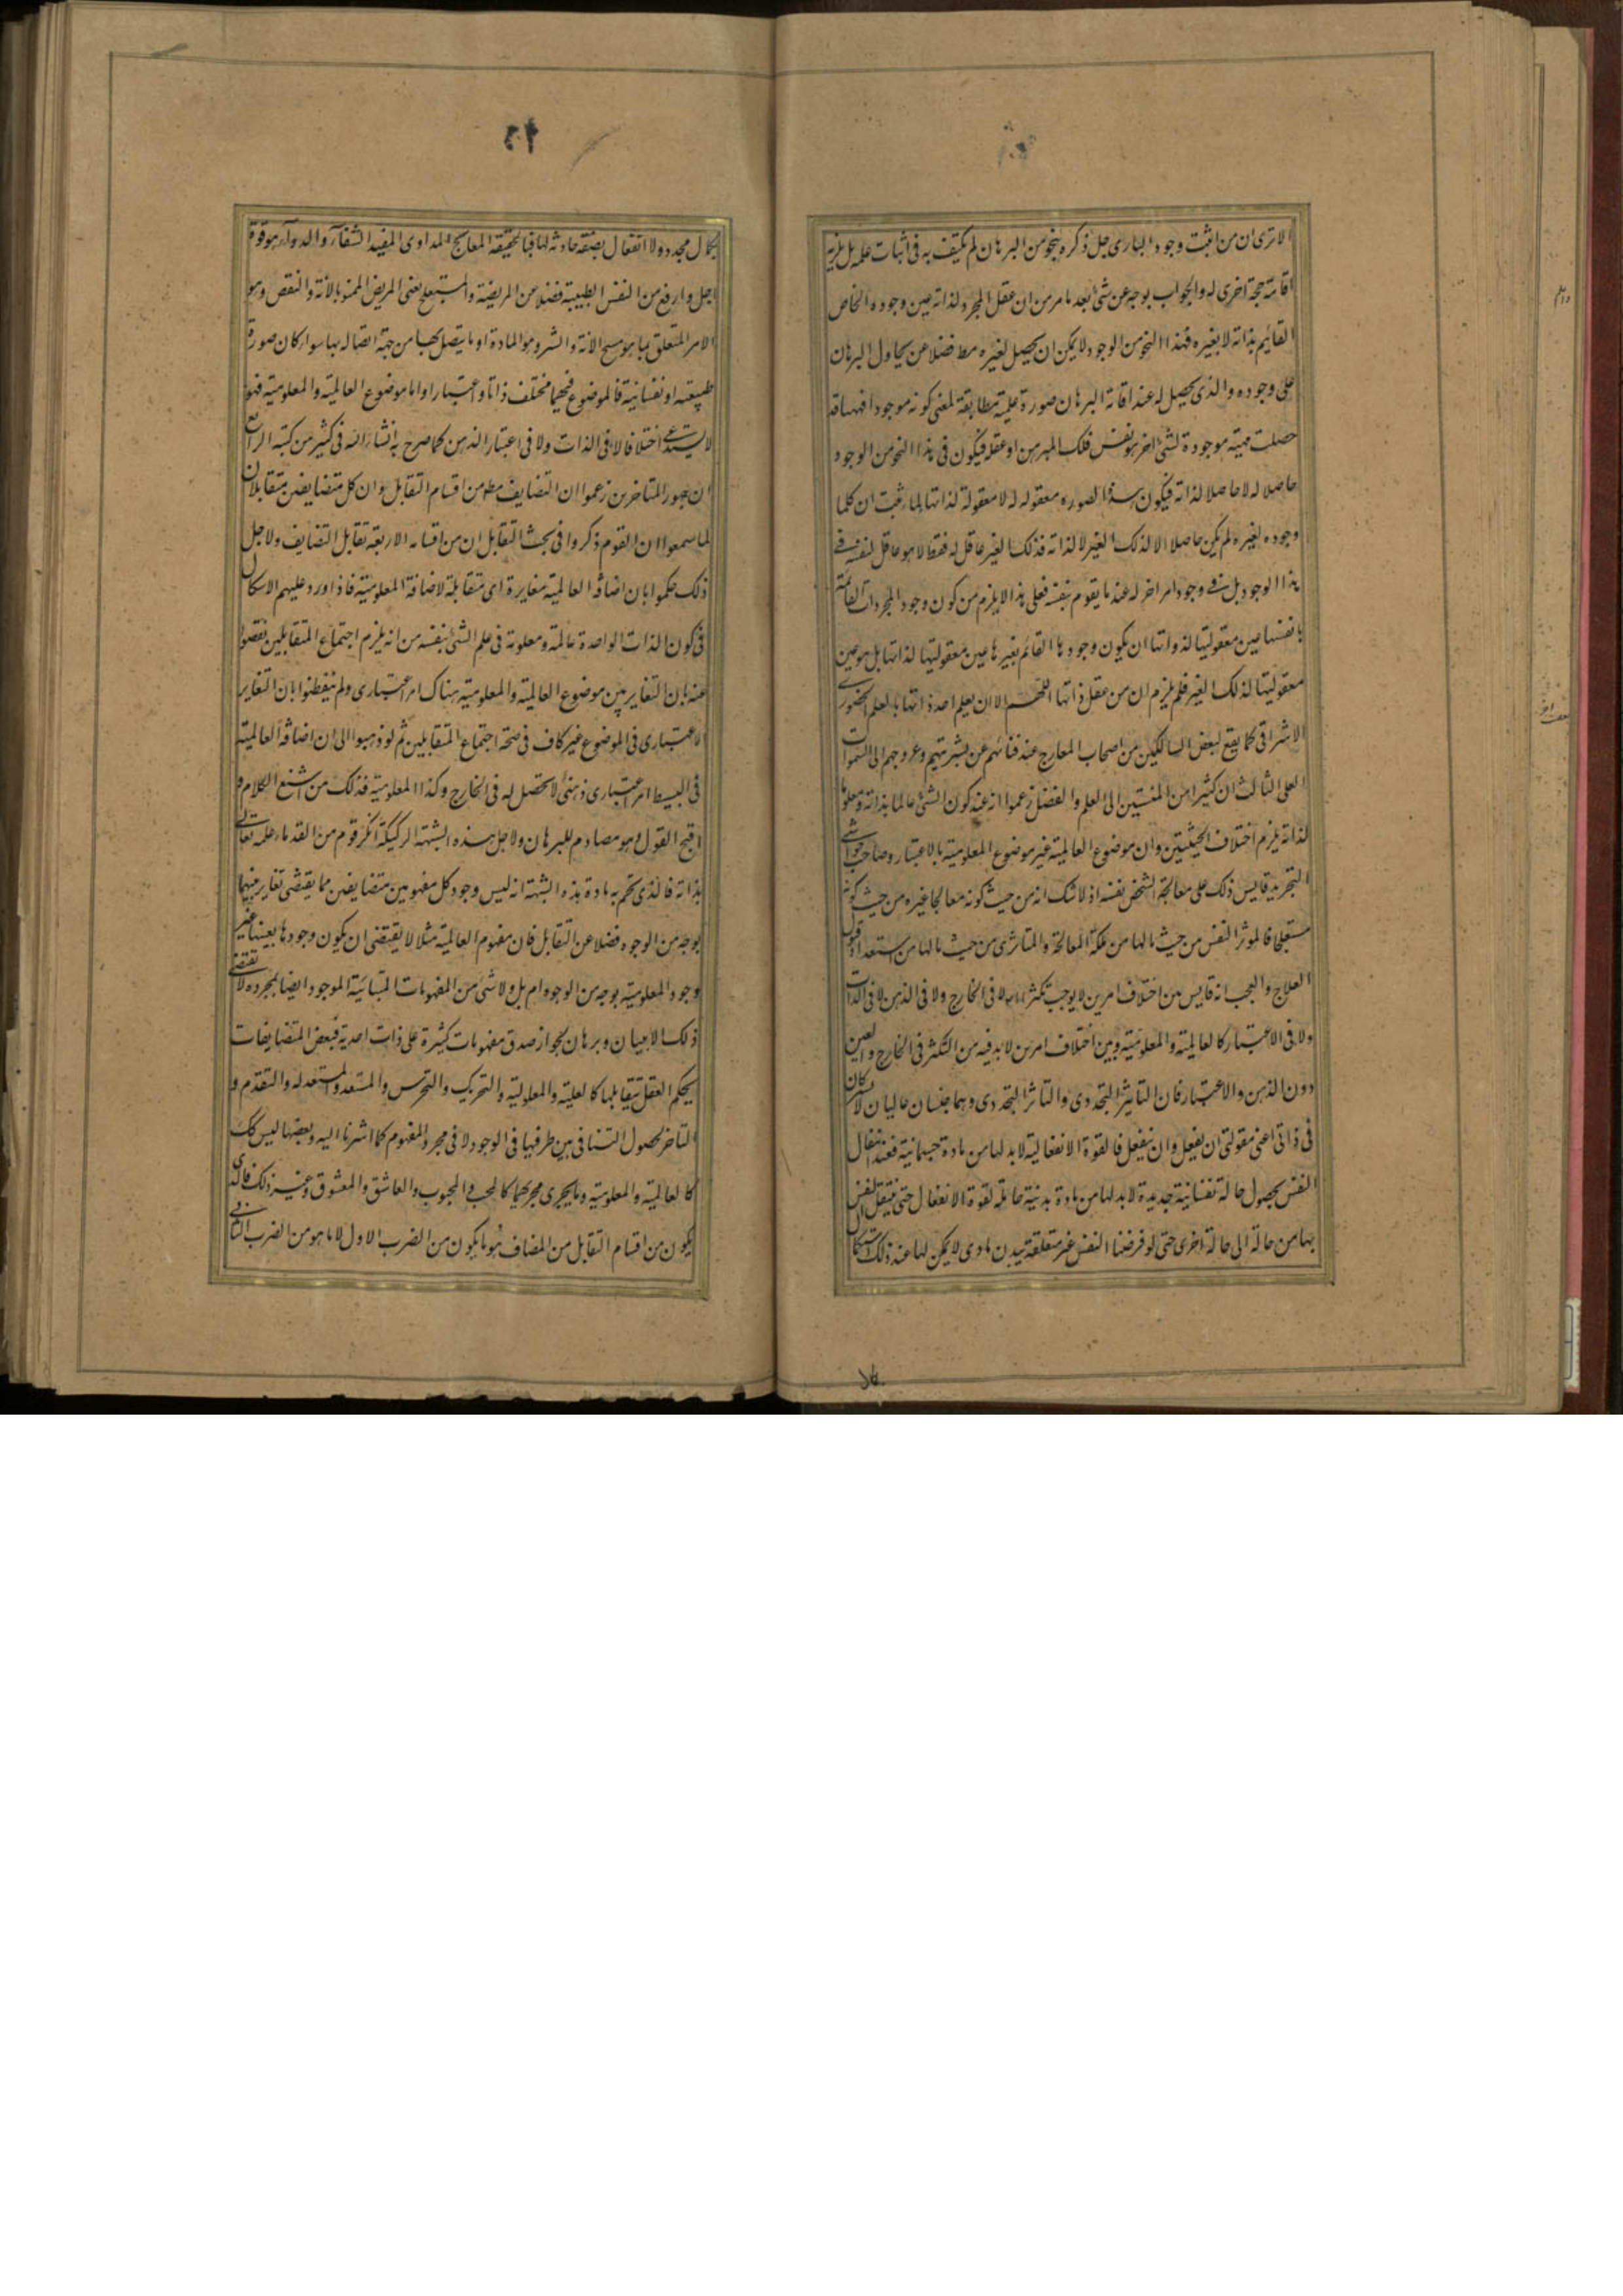 الا ترى ان من اثبت وجود البارى جل ذكره بنحو من البرهان لم يكتف به فى اثبات علمه بل يلزمه
اقامة حجة اخرى له والجواب بوجه عن شئ بعد ما مر من ان عقل المجرد لذاته عين وجوده الخاص
القايم بذاته لا بغيره فهذا النحو من الوجود لا يمكن ان يحصل لغيره مط فضلا عن يحاول البرهان
على وجوده والذى يحصل له عند اقامة البرهان صورة علمية مطابقة لمعنى كونه موجودا فههنا قد
حصلت مهية موجودة لشئ اخر هو نفس ذلك المبرهن او عقله فيكون فى هذا النحو من الوجود
حاصلا له لا حاصلا لذاته فيكون هذا الصوره معقوله له لا معقولة لذاتها لما ثبت ان كلما
وجوده لغيره لم يكن حاصلا الا لذلك الغير لا لذاته فذلك الغير عاقل له فقط لا هو عاقل لنفسه فى
هذا الوجود بل فى وجود امر اخر له عند ما يقوم بنفسه فعلى هذا لا يلزم من كون وجود المجردات القائمة
بانفسها عين معقوليتها لذواتها ان يكون وجودها القائم بغيرها عين معقوليتها لذاتها بل هو عين
معقوليتها لذلك الغير فلم يلزم ان من عقل ذاتها اللهم الا ان يعلم احد ذاتها بالعلم الحضورى
الاشراقى كما يقع لبعض السالكين من اصحاب المعارج عند فنائهم عن بشريتهم وعروجهم الى السموات
العلى الثالث ان كثيرا من المنتسبين الى العلم والفضل زعموا انه عند كون الشئ عالما بذاته ومعلوما
لذاته يلزم اختلاف الحيثيتين وان موضوع العالمية غير موضوع المعلومية بالاعتبار وصاحب حواشى
التجريد قايس ذلك على معالجة الشخص نفسه اذ لا شك انه من حيث كونه معالجا غيره من حيث كونه
مستعلجا فالموثر النفس من حيث مالها من ملكة المعالجة والمتاثر هى من حيث مالها من استعداد قبول
العلاج والعجب انه قايس بين اختلاف امرين لا يوجب تكثرا لا فى الخارج ولا فى الذهن لا فى الذات
ولا فى الاعتبار كالعالمية والمعلومية وبين اختلاف امرين لا بد فيه من التكثر فى الخارج والعين
دون الذهن والاعتبار فان التاثير التجددى والتاثر التجددى وهما جنسان عاليان لا يشتركان
فى ذاتى اعنى مقولتى ان يفعل وان ينفعل فالقوة الانفعالية لا بد لها من مادة جسمانية فعند انفعال
النفس بحصول حالة نفسانية جديدة لا بد لها من مادة بدنية حاملة لقوة الانفعال حتى ينتقل النفس
بها من حالة الى حالة اخرى حتى لو فرضنا النفس غير متعلقة ببدن مادى لا يمكن لها عند ذلك استكمال
بكمال مجدد ولا انفعال بصفة حادثة لها فبالحقيقة المعالج المداوى المفيد الشفآء والدوآء هو قوة
اجل وارفع من النفس الطبيبة فضلا عن المريضة والمستعلج يعنى المريض الممنو بالافة والنقص وهو
الامر المتعلق بما هو منبع الافة والشر وهو المادة او ما يتصل بها من جهة اتصاله بها سواء كان صورة
طبيعته او نفسانية فالموضوع فيهما مختلف ذاتا واعتبارا واما موضوع العالمية والمعلومية فهو
لا يستدعى اختلافا لا فى الذات ولا فى اعتبار الذهن كما صرح به الشارئسه فى كثير من كتبه الرابع
ان جمهور المتاخرين زعموا ان التضايف مط من اقسام التقابل وان كل متضايفين متقابلان
لما سمعوا ان القوم ذكروا فى بحث التقابل ان من اقسامه الاربعة تقابل التضايف ولاجل
ذلك حكموا بان اضافة العالمية مغايرة اى متقابلة لاضافة المعلومية فاذا ورد عليهم الاشكال
فى كون الذات الواحدة عالمة ومعلومة فى علم الشئ بنفسه من انه يلزم اجتماع المتقابلين تفصوا
عنه بان التغاير بين موضوع العالمية والمعلومية هناك امر اعتبارى ولم يتفطنوا بان التغاير
الاعتبارى فى الموضوع غير كاف فى صحة اجتماع المتقابلين ثم لو ذهبوا الى ان اضافة العالمية
فى البسيط امر اعتبارى ذهنى لا تحصل له فى الخارج وكذا المعلومية فذلك من اشنع الكلام و
اقبح القول وهو مصادم للبرهان ولاجل هذه الشبهة الركيكة انكر قوم من القدماء علمه تعالى
بذاته فالذى تحسم به مادة هذه الشبهة انه ليس وجود كل مفهومين متضايفين مما يقتضى تغاير بينهما
بوجه من الوجوه فضلا عن التقابل فان مفهوم العالمية مثلا لا يقتضى ان يكون وجودها بعينها غير
وجود المعلومية بوجه من الوجوه ام بل ولا شئ من المفهومات المتباينة الموجود ايضا بمجرده لا تقتضى
ذلك الا ببيان وبرهان لجواز صدق مفهومات كثيرة على ذات احدية فبعض المتضايفات
يحكم العقل بتقابلهما كالعلية والمعلولية والتحريك والتحرك والمستعد والمستعد له والتقدم و
التاخر لحصول التنافى بين طرفيها فى الوجود لا فى مجرد المفهوم كما اشرنا اليه وبعضها ليس كك
كالعالمية والمعلومية وما يجرى مجريهما كالمحب والمحبوب والعاشق والمعشوق وغير ذلك فالذى
يكون من اقسام التقابل من المضاف هو ما يكون من الضرب الاول لا ما هو من الضرب الثانى